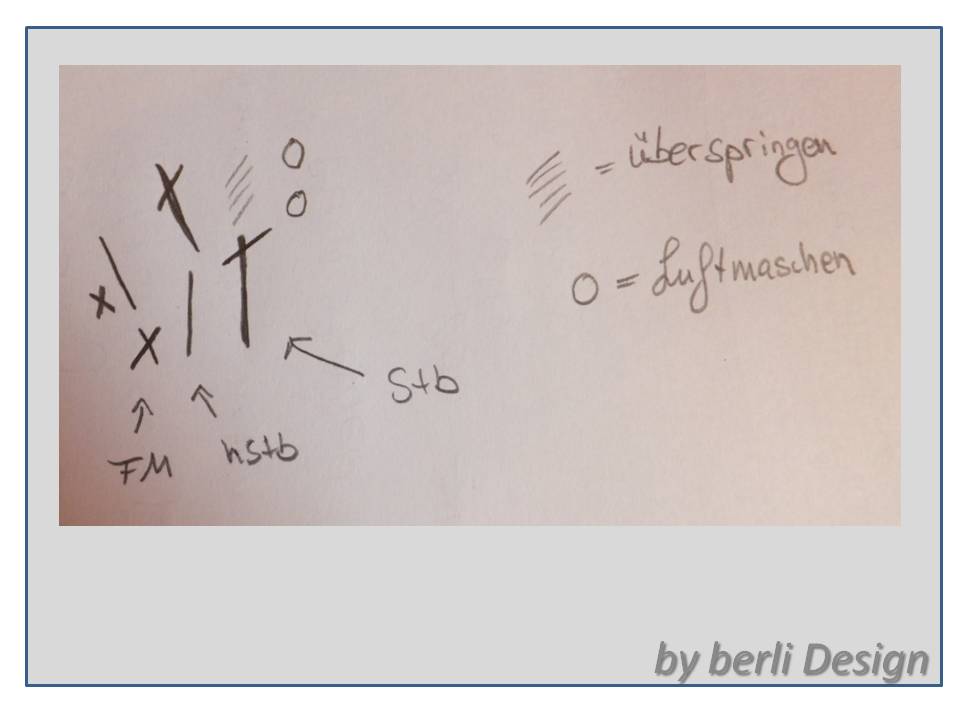 = überspringen
O = Luftmaschen
Stb
hstb
FM
by berli Design